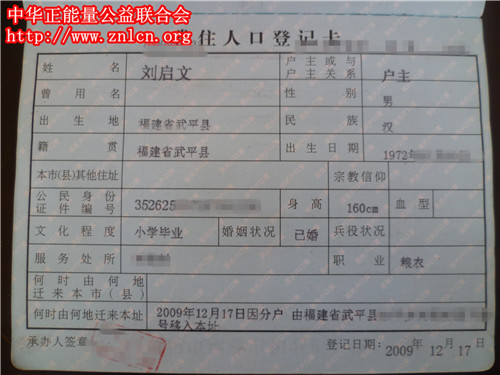 中华正能量公益联合会
www.znlcn.org
住人口登记卡
姓 名 刘启文 户主或与户主关系 户主
曾用名 性别 男
出生地 福建省武平县 民族 汉
籍贯 福建省武平县 出生日期 1972
本市(县)其他住址 宗教信仰
公民身份证件编号 352625 身高 160cm 血型
文化程度 小学毕业 婚姻状况 已婚 兵役状况
服务处所 职业 粮农
何时由何地迁来本市(县)
何时由何地迁来本址 2009年12月17日因分户 由福建省武平县
号移入本址
承办人签章 登记日期: 2009年12月17日